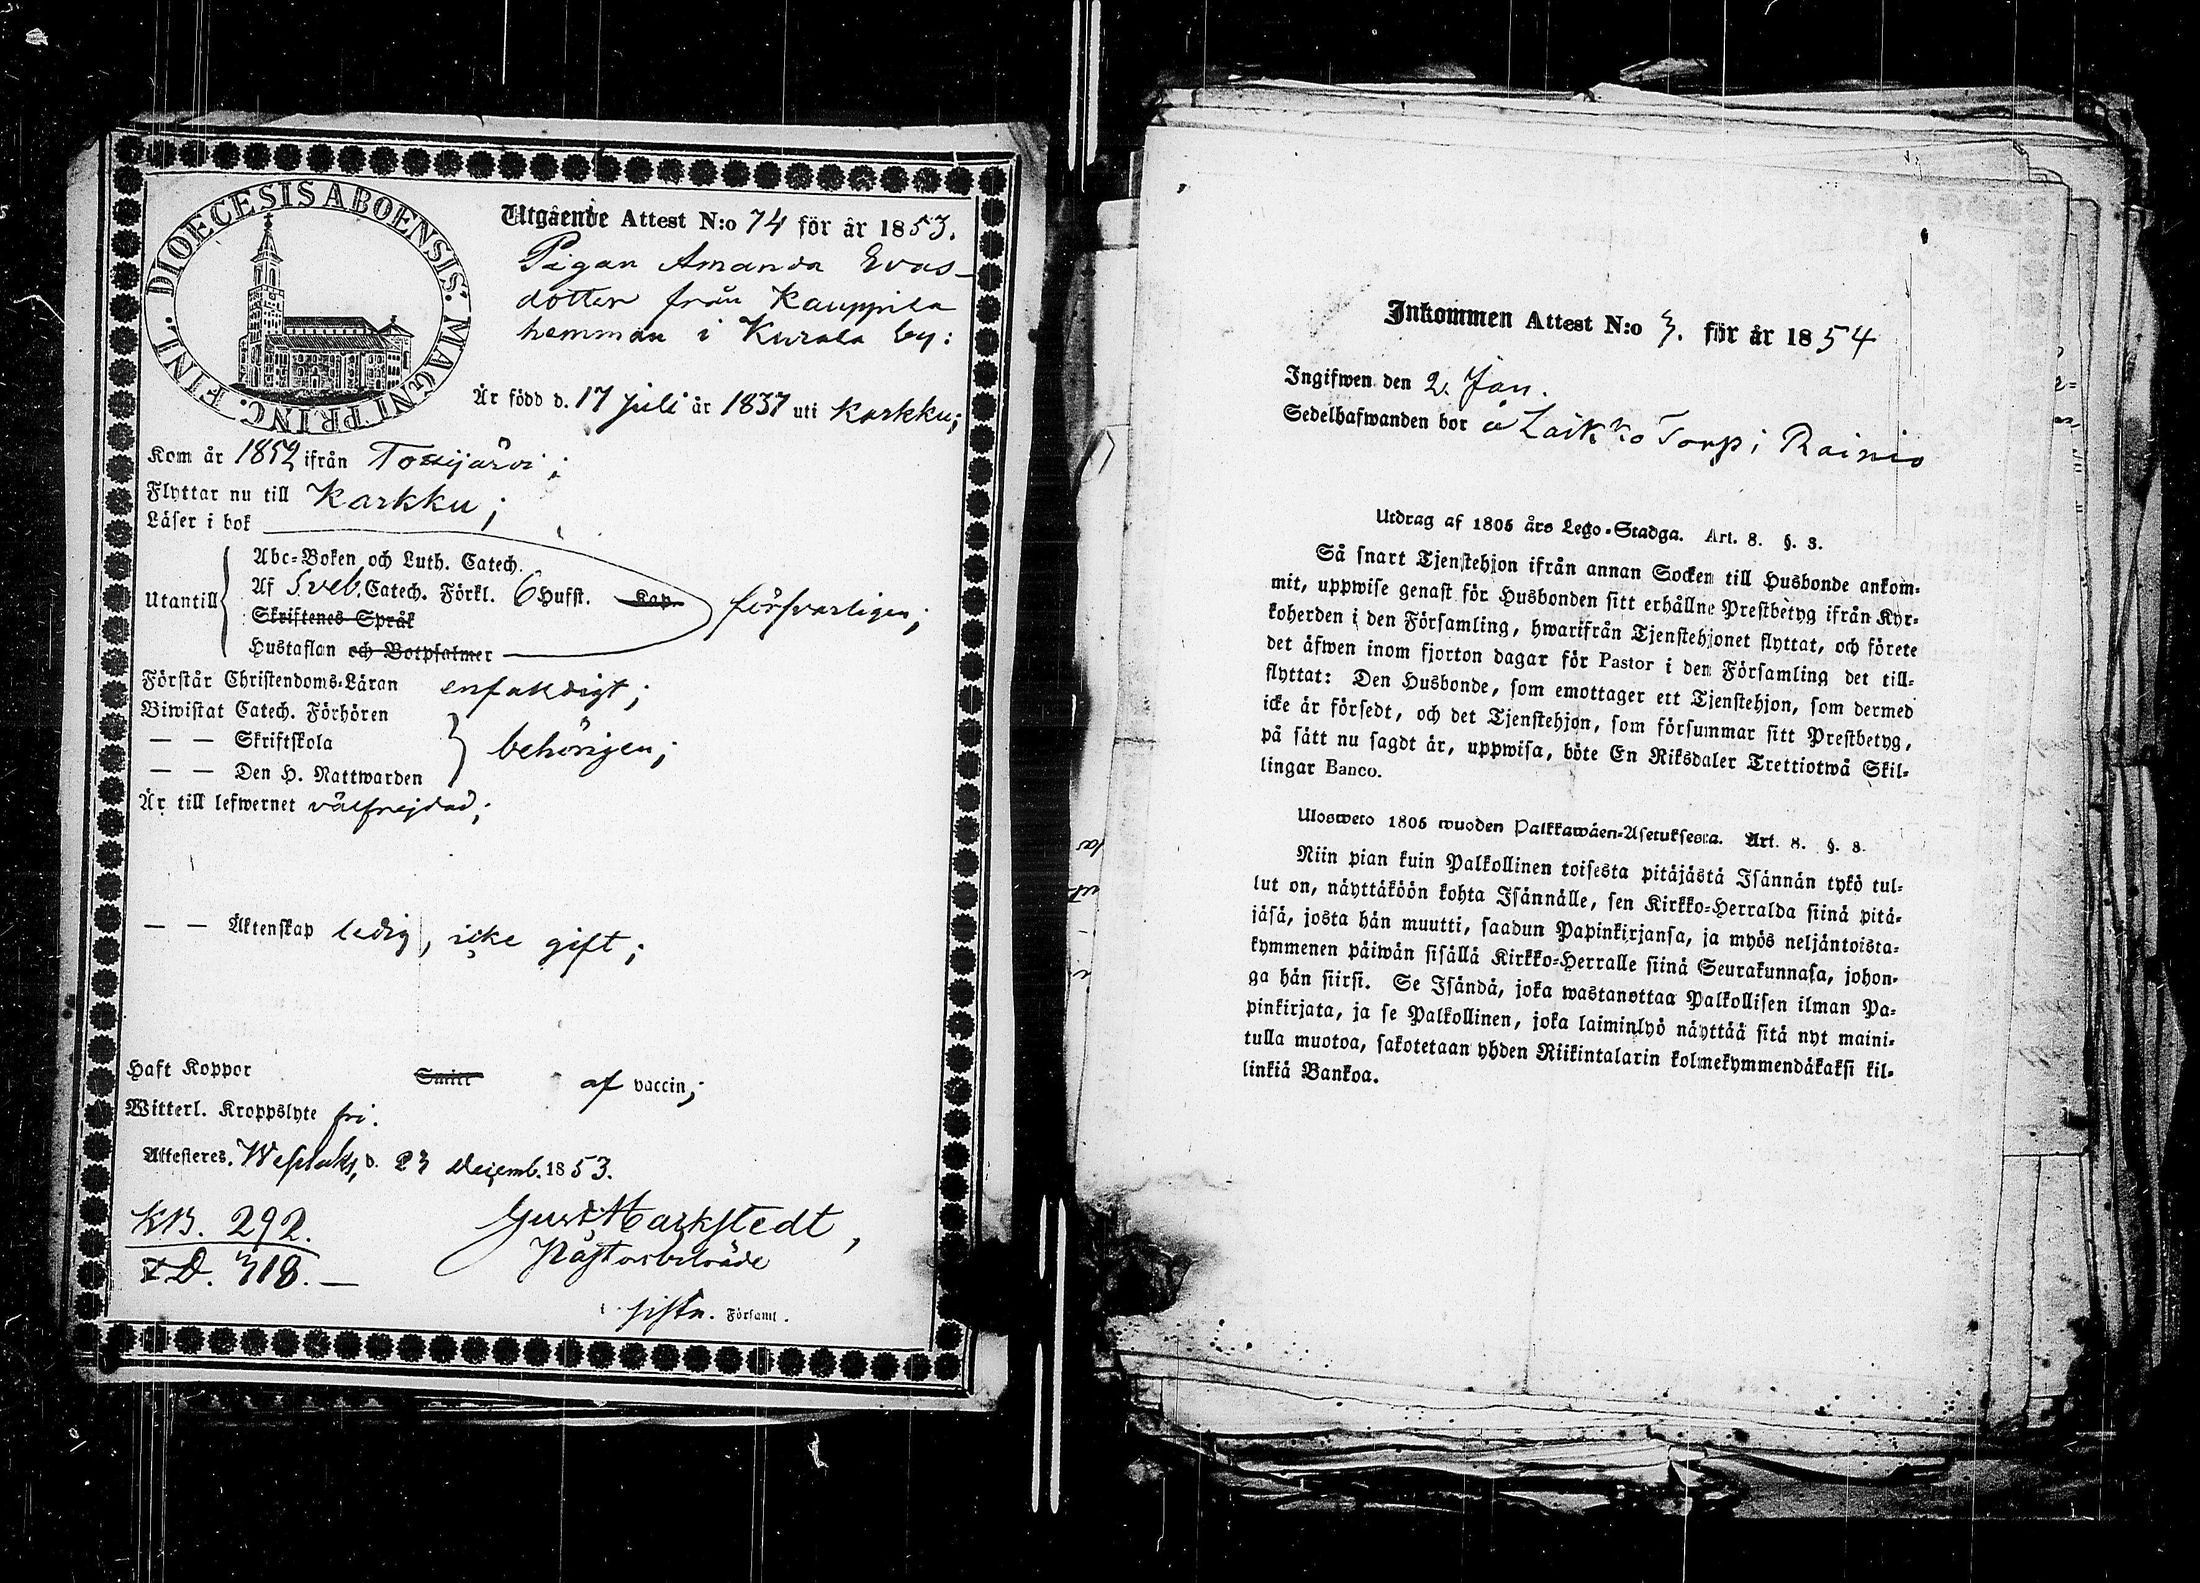 DIOECESIS ABOENSIS. MAGNI PRINC. FINL.
Utgående Attest N:o 74 för år 1853.
Pigan Amanda Evas-
dotter från Kauppila
hemman i Kurala by:
Är född d. 17 juli år 1837 uti Karkku;
Kom år 1852 ifrån Tottijärvi;
Flyttar nu till Karkku;
Läser i bok
Utantill
Abc-Boken och Luth. Catech.
Af Sveb. Catech. Förkl. 6 Hufst. Kap. försvarligen;
Skriftenes Språk
Hustaflan och Botpsalmer
Förstår Christendoms-Läran enfaldigt;
Biwistat Catech. Förhören
— — Skriftskola behörigen;
— — Den H. Nattwarden
Är till lefwernet välfrejdad;
— — Äktenskap ledig, icke gift;
Haft Koppor af vaccin;
Witterl. Kroppslyte fri.
Attesteres. Wesilaks, d. 23 Decemb. 1853.
KB. 292.
D. 318. —
Gust. Markstedt,
Pastorsbiträde
i sista. Församl.
Inkommen Attest N:o 3. för år 1854
Ingifwen den 2. Jan.
Sedelhafwanden bor å Laikko Torp i Rainio
Utdrag af 1805 års Lego-Stadga. Art. 8. §. 3.
Så snart Tjenstehjon ifrån annan Socken till Husbonde ankom-
mit, uppwise genast för Husbonden sitt erhållne Prestbetyg ifrån Kyr-
koherden i den Församling, hwarifrån Tjenstehjonet flyttat, och förete
det äfwen inom fjorton dagar för Pastor i den Församling det till-
flyttat: Den Husbonde, som emottager ett Tjenstehjon, som dermed
icke är försedt, och det Tjenstehjon, som försummar sitt Prestbetyg,
på sätt nu sagdt är, uppwisa, böte En Riksdaler Trettiotwå Skil-
lingar Banco.
Ulosweto 1805 wuoden Palkkawäen-Asetuksesta. Art. 8. §. 3.
Niin pian kuin Palkollinen toisesta pitäjästä Isännän tykö tul-
lut on, näyttäköön kohta Isännälle, sen Kirkko-Herralda siinä pitä-
jäsä, josta hän muutti, saadun Papinkirjansa, ja myös neljäntoista-
kymmenen päiwän sisällä Kirkko-Herralle siinä Seurakunnasa, johon-
ga hän siirsi. Se Isändä, joka wastanottaa Palkollisen ilman Pa-
pinkirjata, ja se Palkollinen, joka laiminlyö näyttää sitä nyt maini-
tulla muotoa, sakotetaan yhden Riikintalarin kolmekymmendäkaksi kil-
linkiä Bankoa.